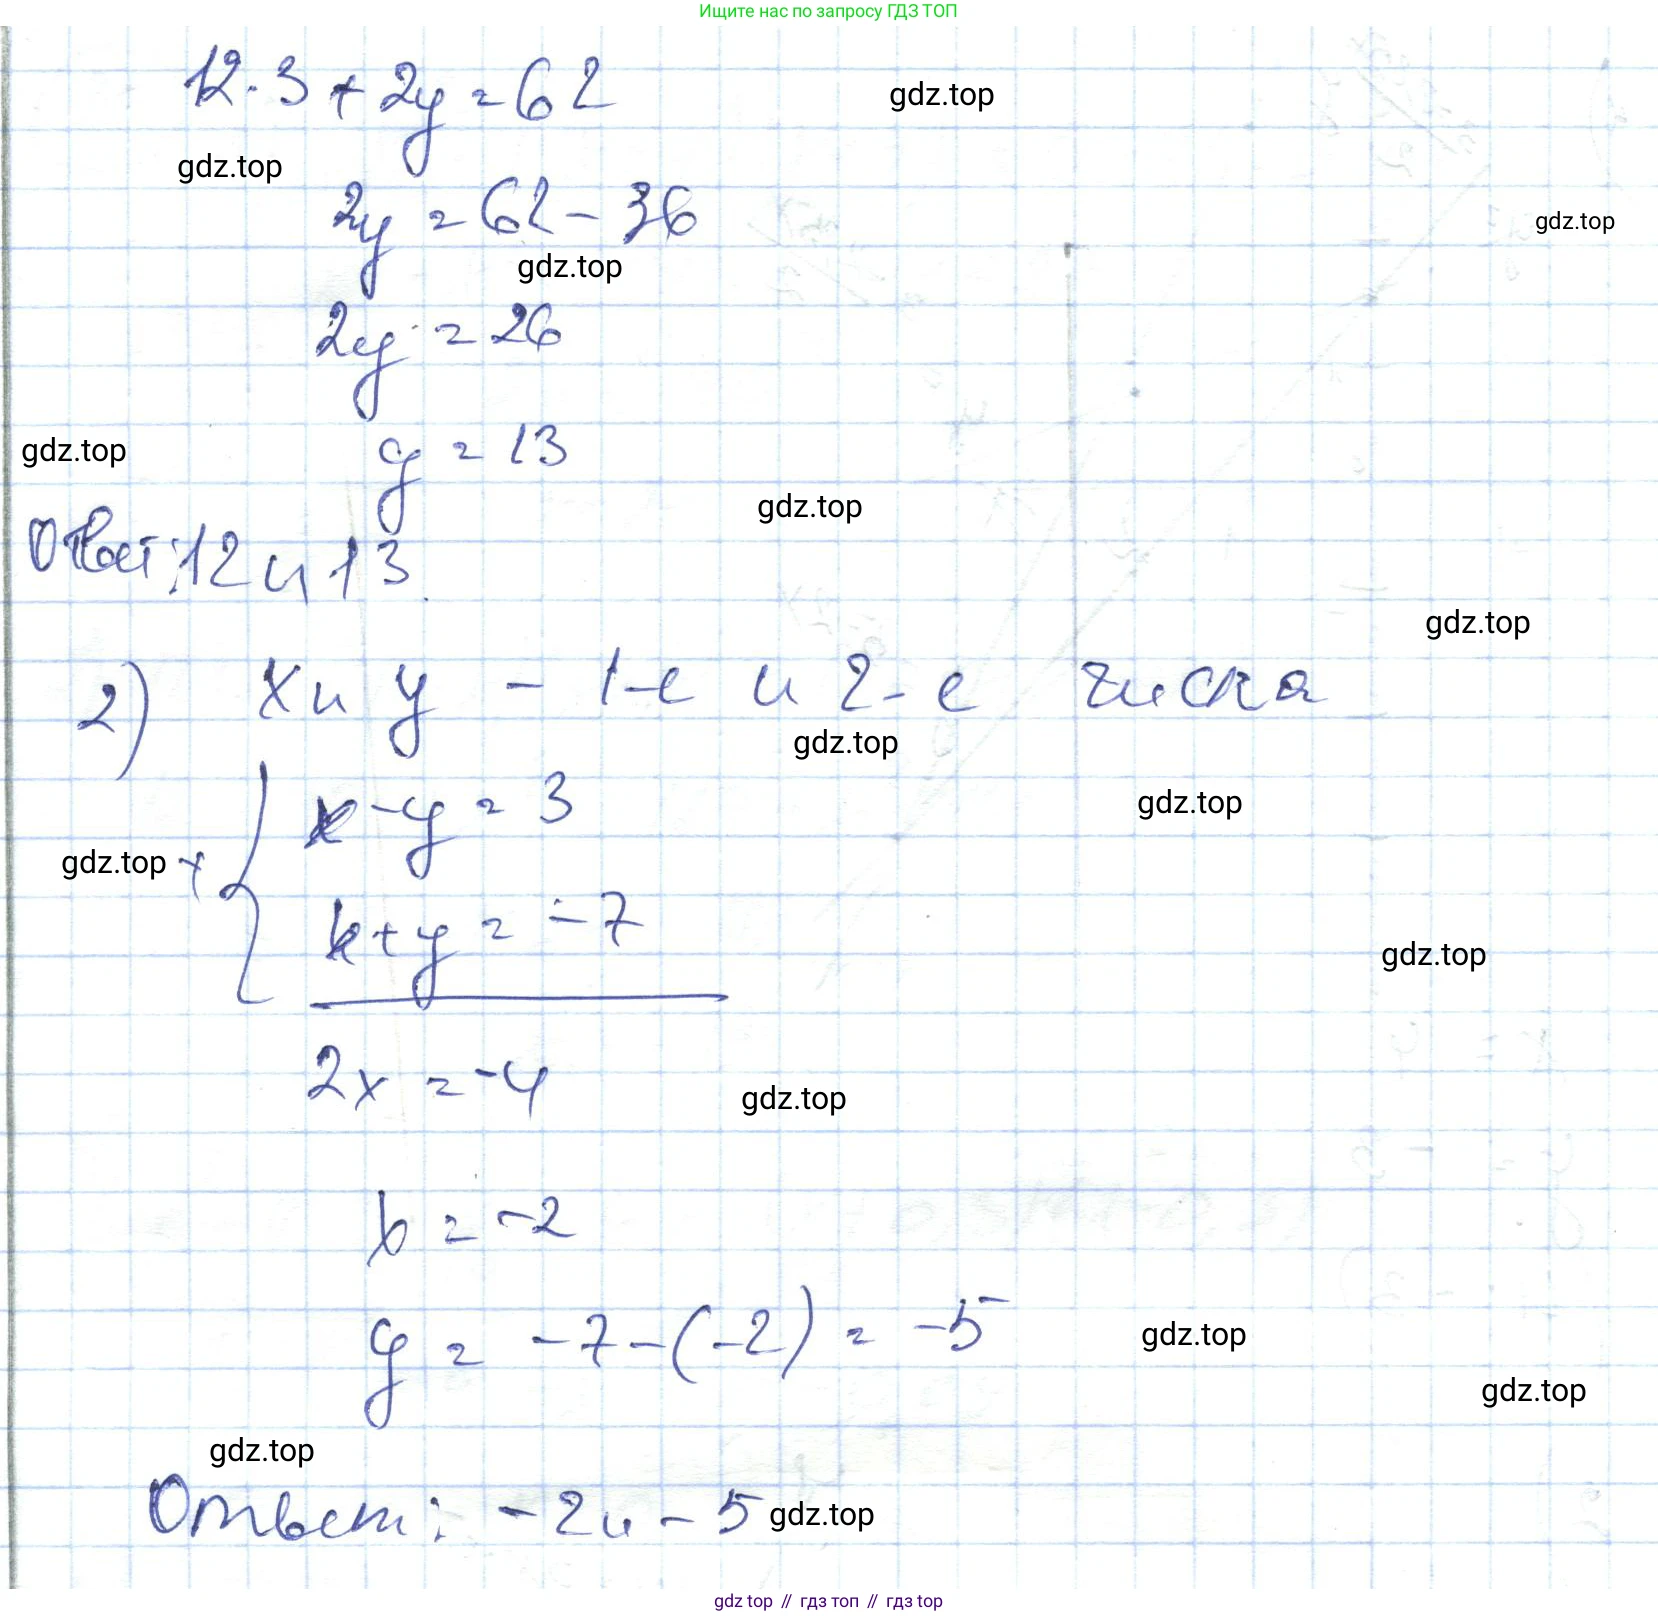 Ищите нас по запросу ГДЗ ТОП
12·3+2y=62
gdz.top
gdz.top
2y=62-36
gdz.top
gdz.top
2y=26
y=13
gdz.top
gdz.top
Ответ: 12 и 13.
gdz.top
2) x и y - 1-е и 2-е числа
gdz.top
x-y=3
gdz.top
gdz.top + {
x+y=-7
gdz.top
2x=-4
gdz.top
x=-2
y=-7-(-2)=-5
gdz.top
gdz.top
gdz.top
Ответ: -2 и -5
gdz.top
gdz top // гдз топ // гдз top